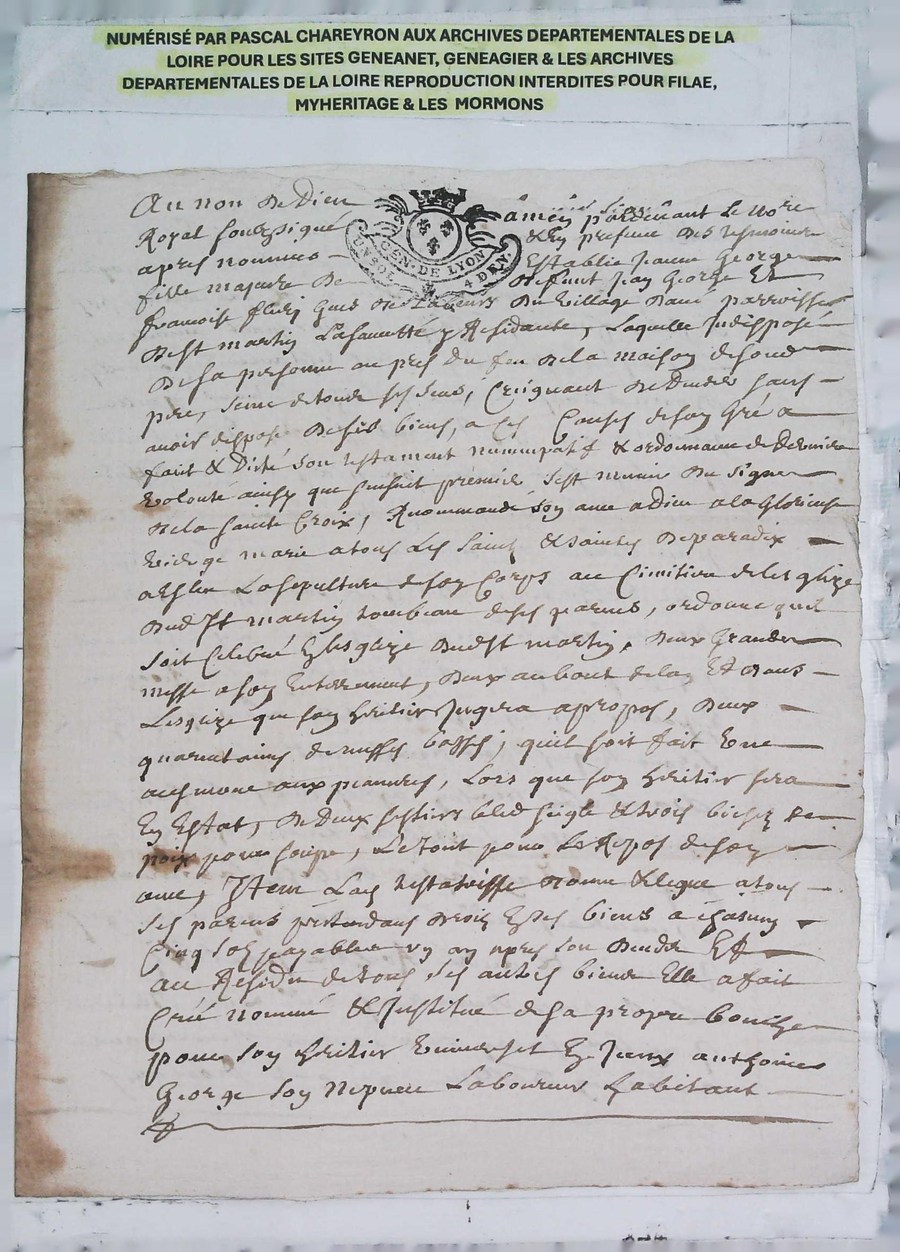 NUMÉRISÉ PAR PASCAL CHAREYRON AUX ARCHIVES DEPARTEMENTALES DE LA
LOIRE POUR LES SITES GENEANET, GENEAGIER & LES ARCHIVES
DEPARTEMENTALES DE LA LOIRE REPRODUCTION INTERDITES POUR FILAE,
MYHERITAGE & LES MORMONS
Au non de Dieu amen pardevant le no.re
Royal soubzsigné & en presence des tesmoins
GEN. DE LYON
UN SOL 4 DEN.
apres nommes establie Jeanne George
fille majeure de deffunt Jean George Et
francoise du village parroisse
de st martin Lasauveté y Residante, Laquelle Indisposé
de sa personne au pres du feu de la maison de son
pere, seine de tous ses sens, Creignant de deceder sans
avoir disposé de ses biens, a ces Causes de son Gré a
fait & Dicté son testament nuncupatif & ordonnance de derniere
volonté ainsy que sensuit premier s'est munie du signe
de la sainte Croix, Recommandé son ame a Dieu a la Glorieuse
vierge marie a tous Les saints & saintes de paradix
a Esleu La sepulture de son Corps au Cimitiere de lesglize
dud st martin tombeau de ses parens, ordonne quil
soit celebré En lesglize dud st martin, deux Grandes
messe a son Enterrement, deux au bout de lan Et dans
Lesglize que son heritier Jugera apropos, deux
quarantaines de messes basses, quil soit fait une
aumone aux pauvres, Lors que son heritier sera
En Estat, de deux sestiers bled seigle & trois bichez de
poix pour soupe, Le tout pour Le Repos de son
ame, Item Lad testatrisse donne & legue a tous
ses parens pretendans droit Es ses biens a chascung
Cinq solz payables un an apres son decedz Et
au Residu de tous ses autres biens Elle a fait
Creé nommé & Institué de sa propre bouche
pour son heritier universel Jean anthoine
George son Nepveu Laboureur habitant